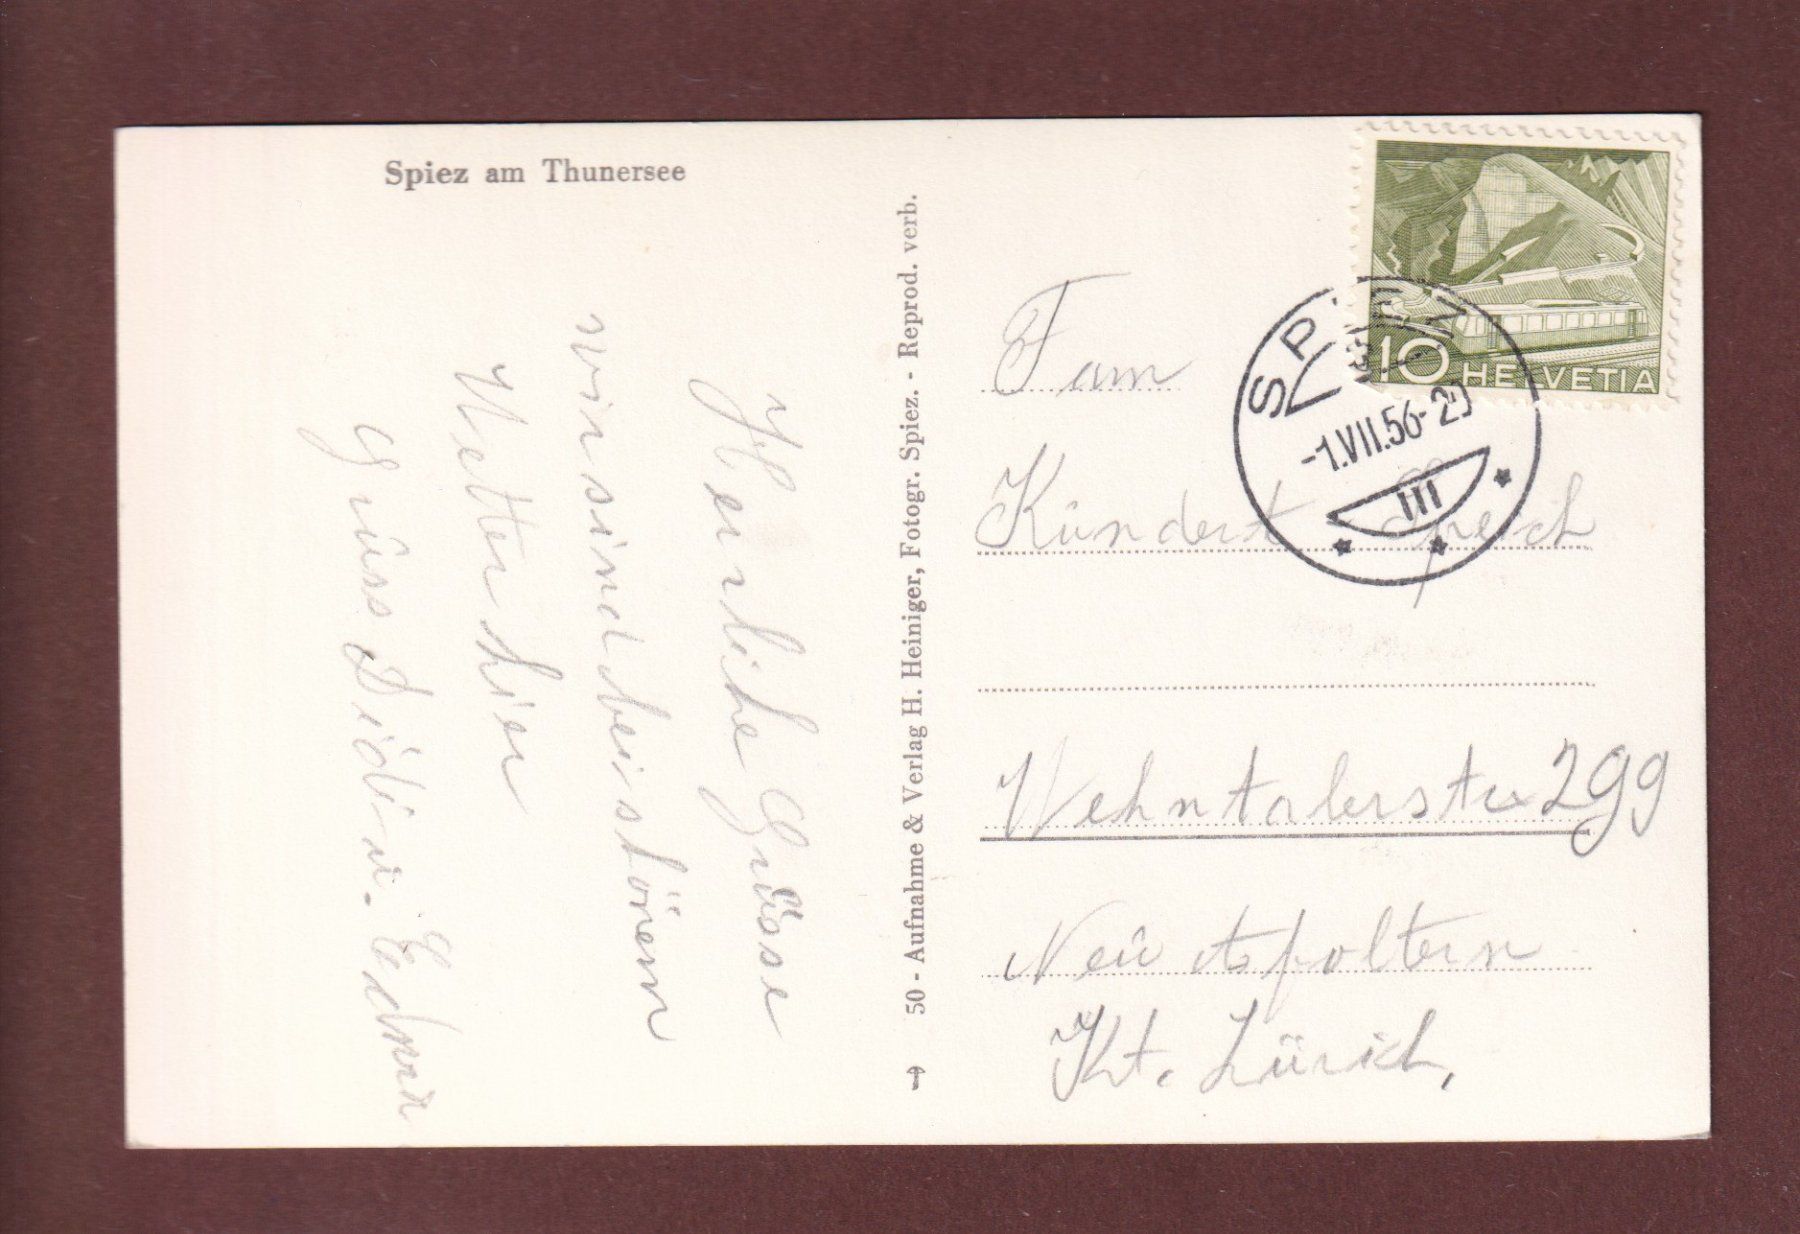 Spiez am Thunersee
Herzliche Grüsse
wir sind bei schönem
Wetter hier
Gruss
50 - Aufnahme & Verlag H. Heiniger, Fotogr. Spiez. - Reprod. verb.
10 HELVETIA
SPIEZ
-1.VII.56-20
III
Fam
Kündert Speich
Wehntalerstr 299
Neu Affoltern
Kt. Zürich,